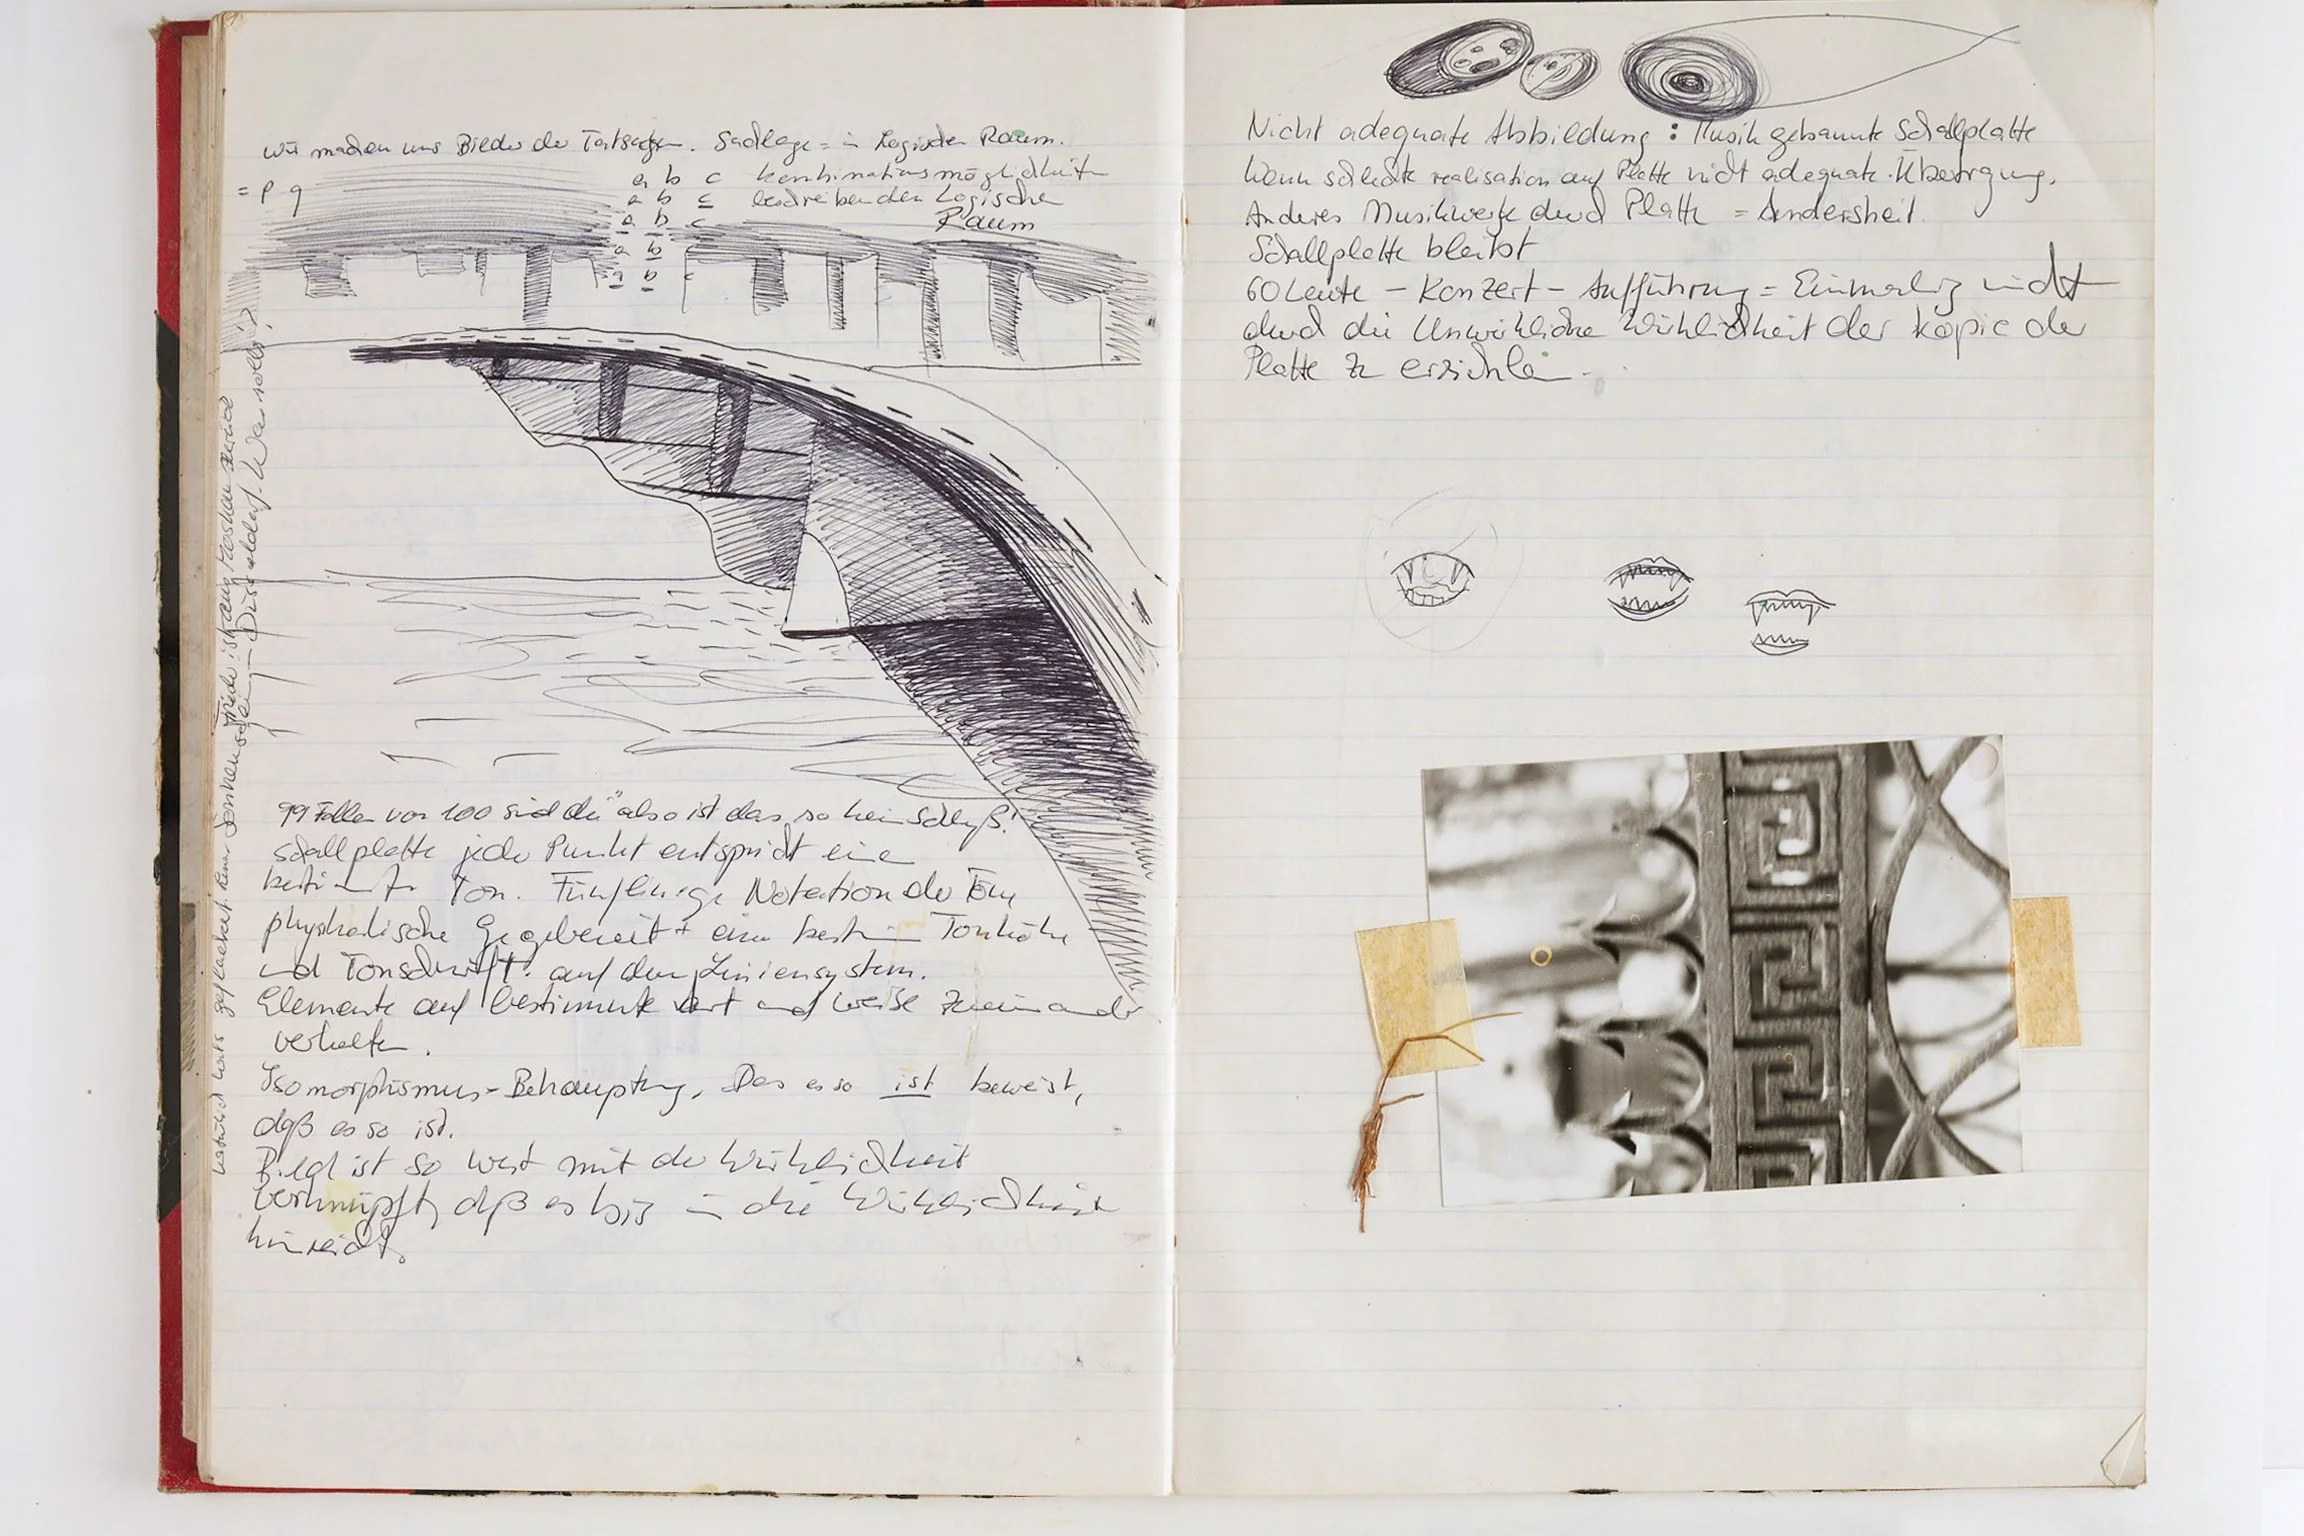 wir machen uns Bilder der Tatsachen. Sachlage = in Logischen Raum.
= p q
a b c Kombinationsmöglichkeit
a b c beschreiben den Logische
a b c Raum
a b
a b c
99 Fällen von 100 sind die "also ist das so kein Schluß!
Schallplatte jeder Punkt entspricht eine
bestimmten Ton. Fünflinige Notation der Töne
physikalische Gegebenheit + eine bestimm Tonhöhe
und Tonschrift. auf dem Liniensystem.
Elemente auf bestimmte Art und Weise zueinander
verhalten.
Isomorphismus-Behauptung. Das es so ist beweist,
daß es so ist.
Bild ist so weit mit der Wirklichkeit
verknüpft, daß es bis in die Wirklichkeit
hinreicht.
ist aus Moskau zurück
Düsseldorf. Wer soll?
Nicht adequate Abbildung: Musik gebannte Schallplatte
Wenn schlechte realisation auf Platte nicht adequate Übertragung.
Anderes Musikwerk durch Platte = Andersheit.
Schallplatte bleibt
60 Leute – Konzert – Aufführung = Einmalig nicht
durch die Unwirkliche Wirklichkeit der Kopie der
Platte zu erzielen.